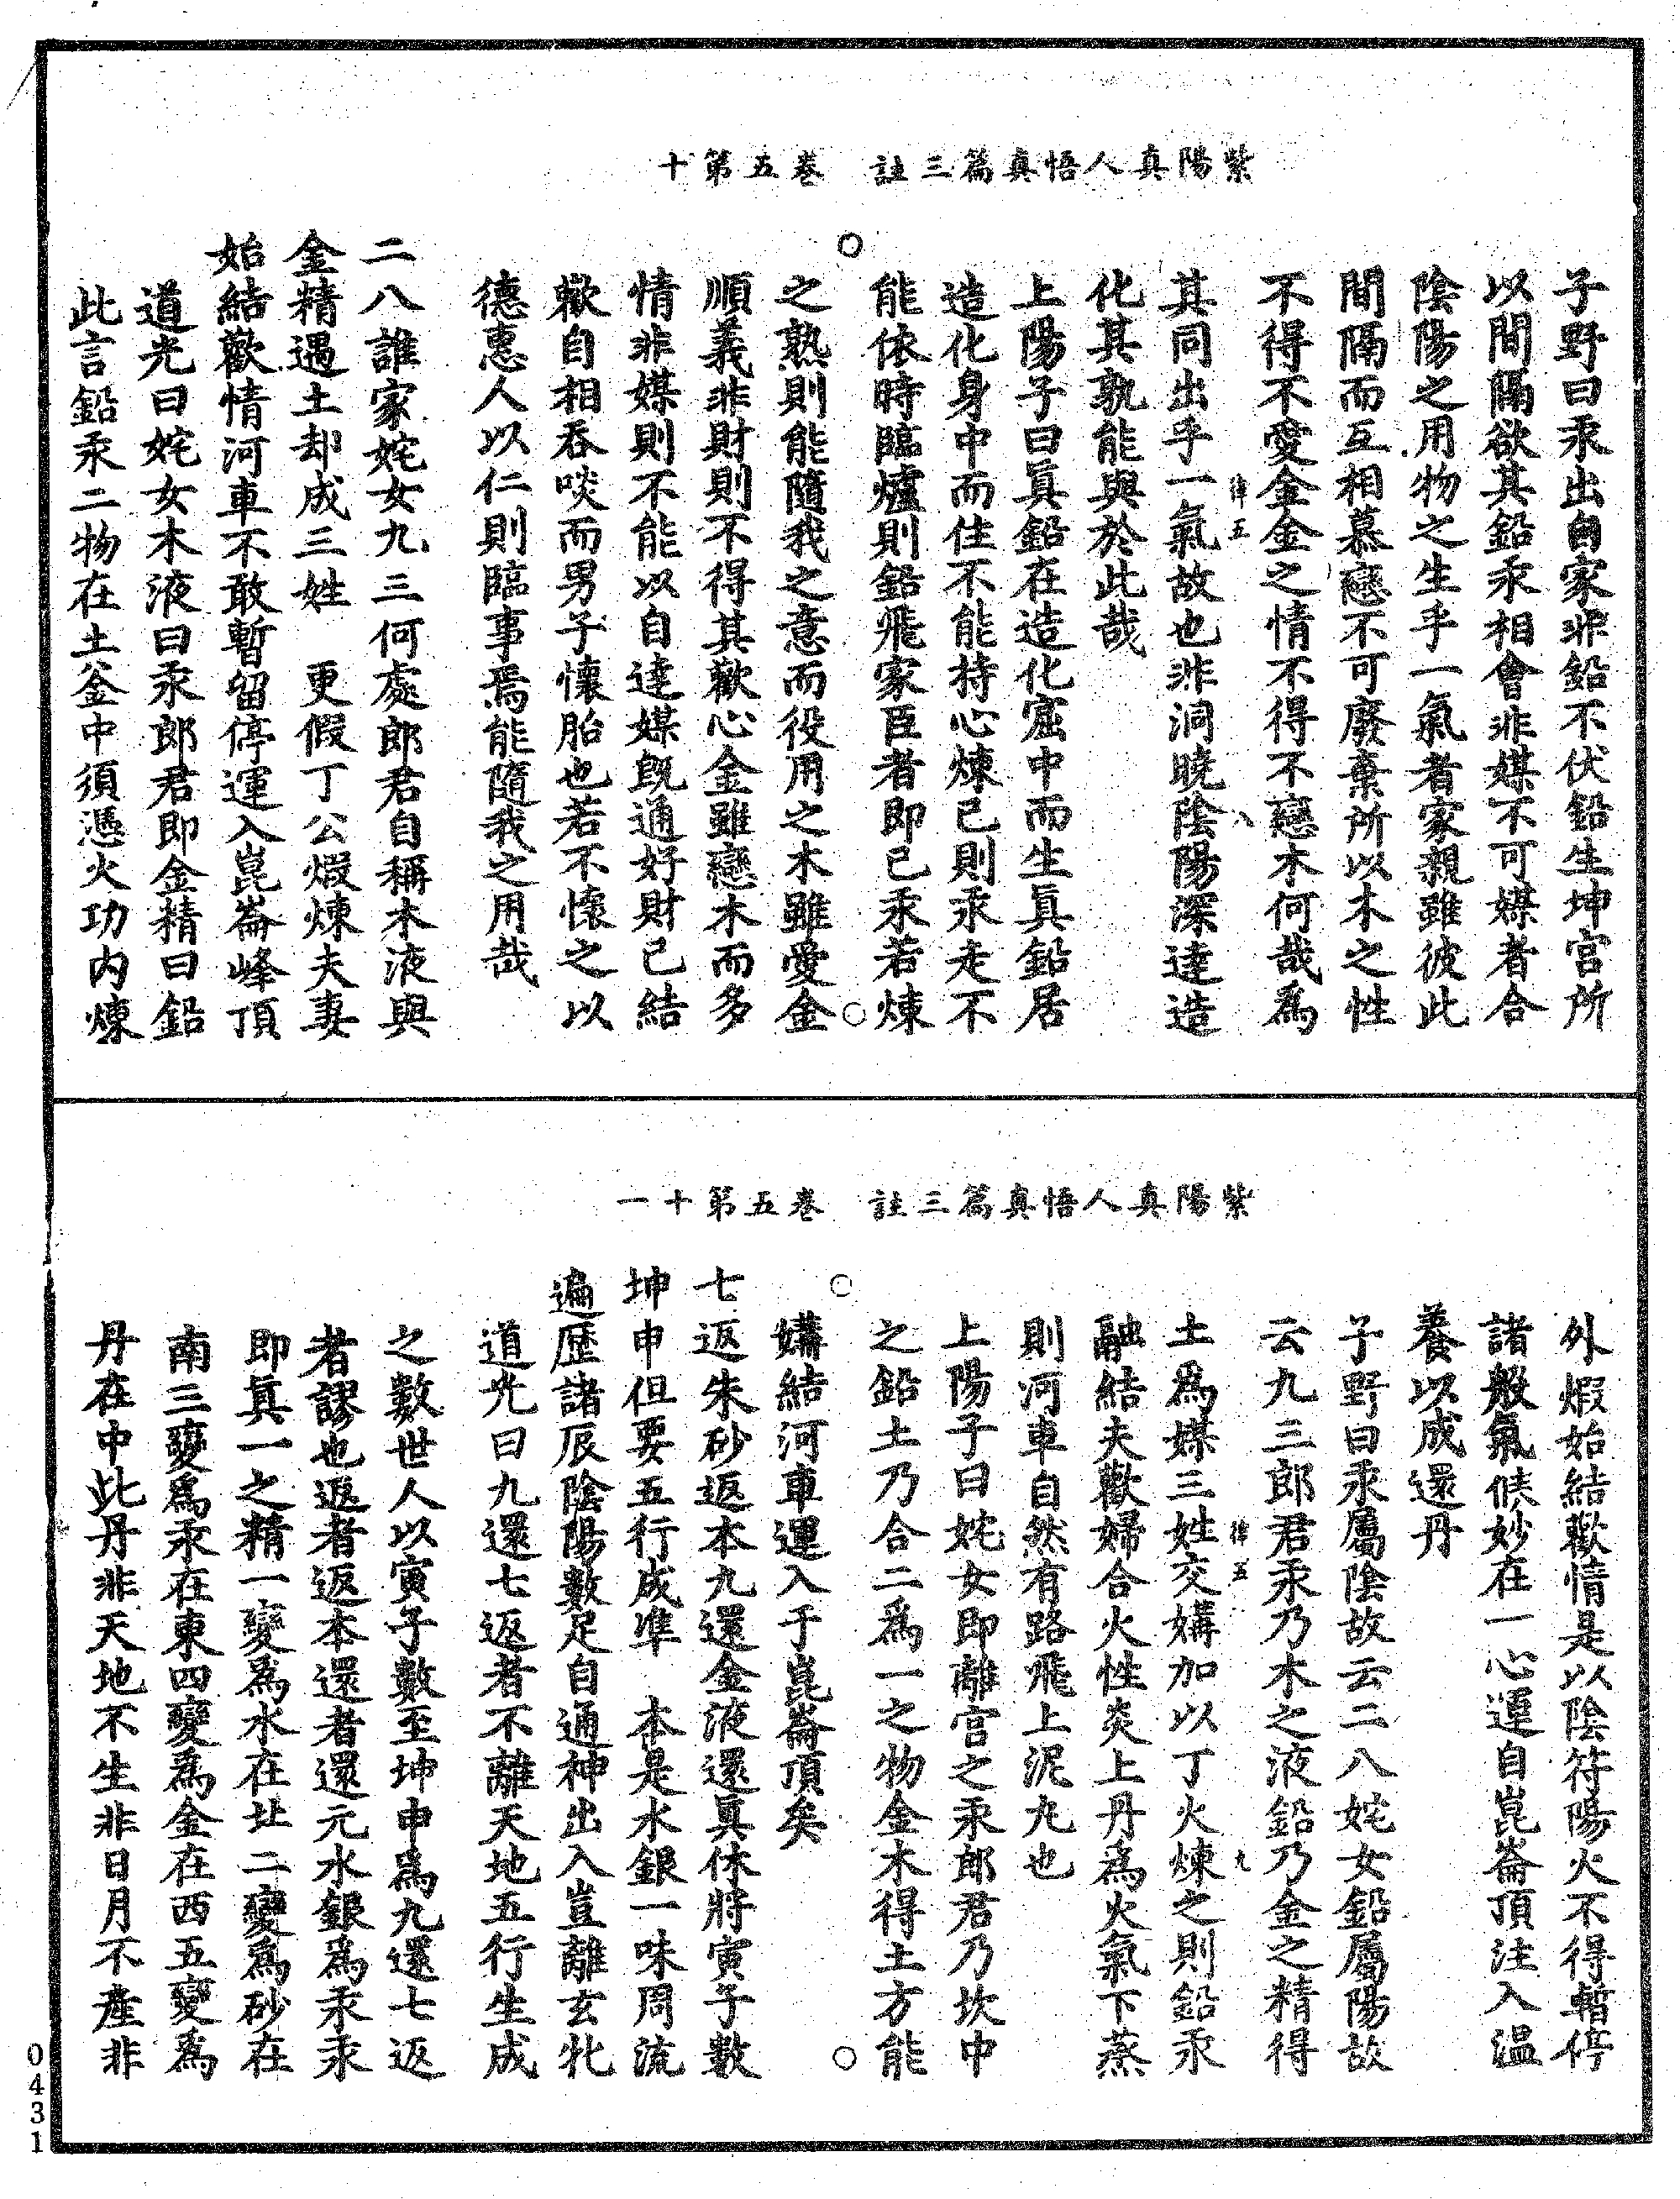 紫陽真人悟真篇三註　卷五第十
子野曰汞出自家非鉛不伏鉛生坤宮所
以間隔欲其鉛汞相會非媒不可媒者合
陰陽之用物之生乎一氣者家親雖彼此
間隔而互相慕戀不可廢棄所以木之性
不得不愛金金之情不得不戀木何哉爲
律五　八
其同出乎一氣故也非洞曉陰陽深達造
化其孰能與於此哉
上陽子曰眞鉛在造化窟中而生眞鉛居
造化身中而住不能持心煉己則汞走不
能依時臨爐則鉛飛家臣者即己汞若煉
之熟則能隨我之意而役用之木雖愛金
順義非財則不得其歡心金雖戀木而多
情非媒則不能以自達媒既通好財已結
歡自相吞啖而男子懷胎也若不懷之以
德惠人以仁則臨事焉能隨我之用哉
二八誰家姹女九三何處郎君自稱木液與
金精遇土却成三姓　更假丁公煅煉夫妻
始結歡情河車不敢暫留停運入崑崙峰頂
道光曰姹女木液曰汞郎君即金精曰鉛
此言鉛汞二物在土釜中須憑火功內煉
紫陽真人悟真篇三註　卷五第十一
外煅始結歡情是以陰符陽火不得暫停
諸般氣候妙在一心運自崑崙頂注入溫
養以成還丹
子野曰汞屬陰故云二八姹女鉛屬陽故
云九三郎君汞乃木之液鉛乃金之精得
律五　九
土爲媒三姓交媾加以丁火煉之則鉛汞
融結夫歡婦合火性炎上丹爲火氣下蒸
則河車自然有路飛上泥九也
上陽子曰姹女即離宮之汞郎君乃坎中
之鉛土乃合二爲一之物金木得土方能
媾結河車運入于崑崙頂矣
七返朱砂返本九還金液還眞休將寅子數
坤申但要五行成準　本是水銀一味周流
遍歷諸辰陰陽數足自通神出入豈離玄牝
道光曰九還七返者不離天地五行生成
之數世人以寅子數至坤申爲九還七返
者謬也返者返本還者還元水銀爲汞汞
即眞一之精一變爲水在北二變爲砂在
南三變爲汞在東四變爲金在西五變爲
丹在中此丹非天地不生非日月不產非
0431